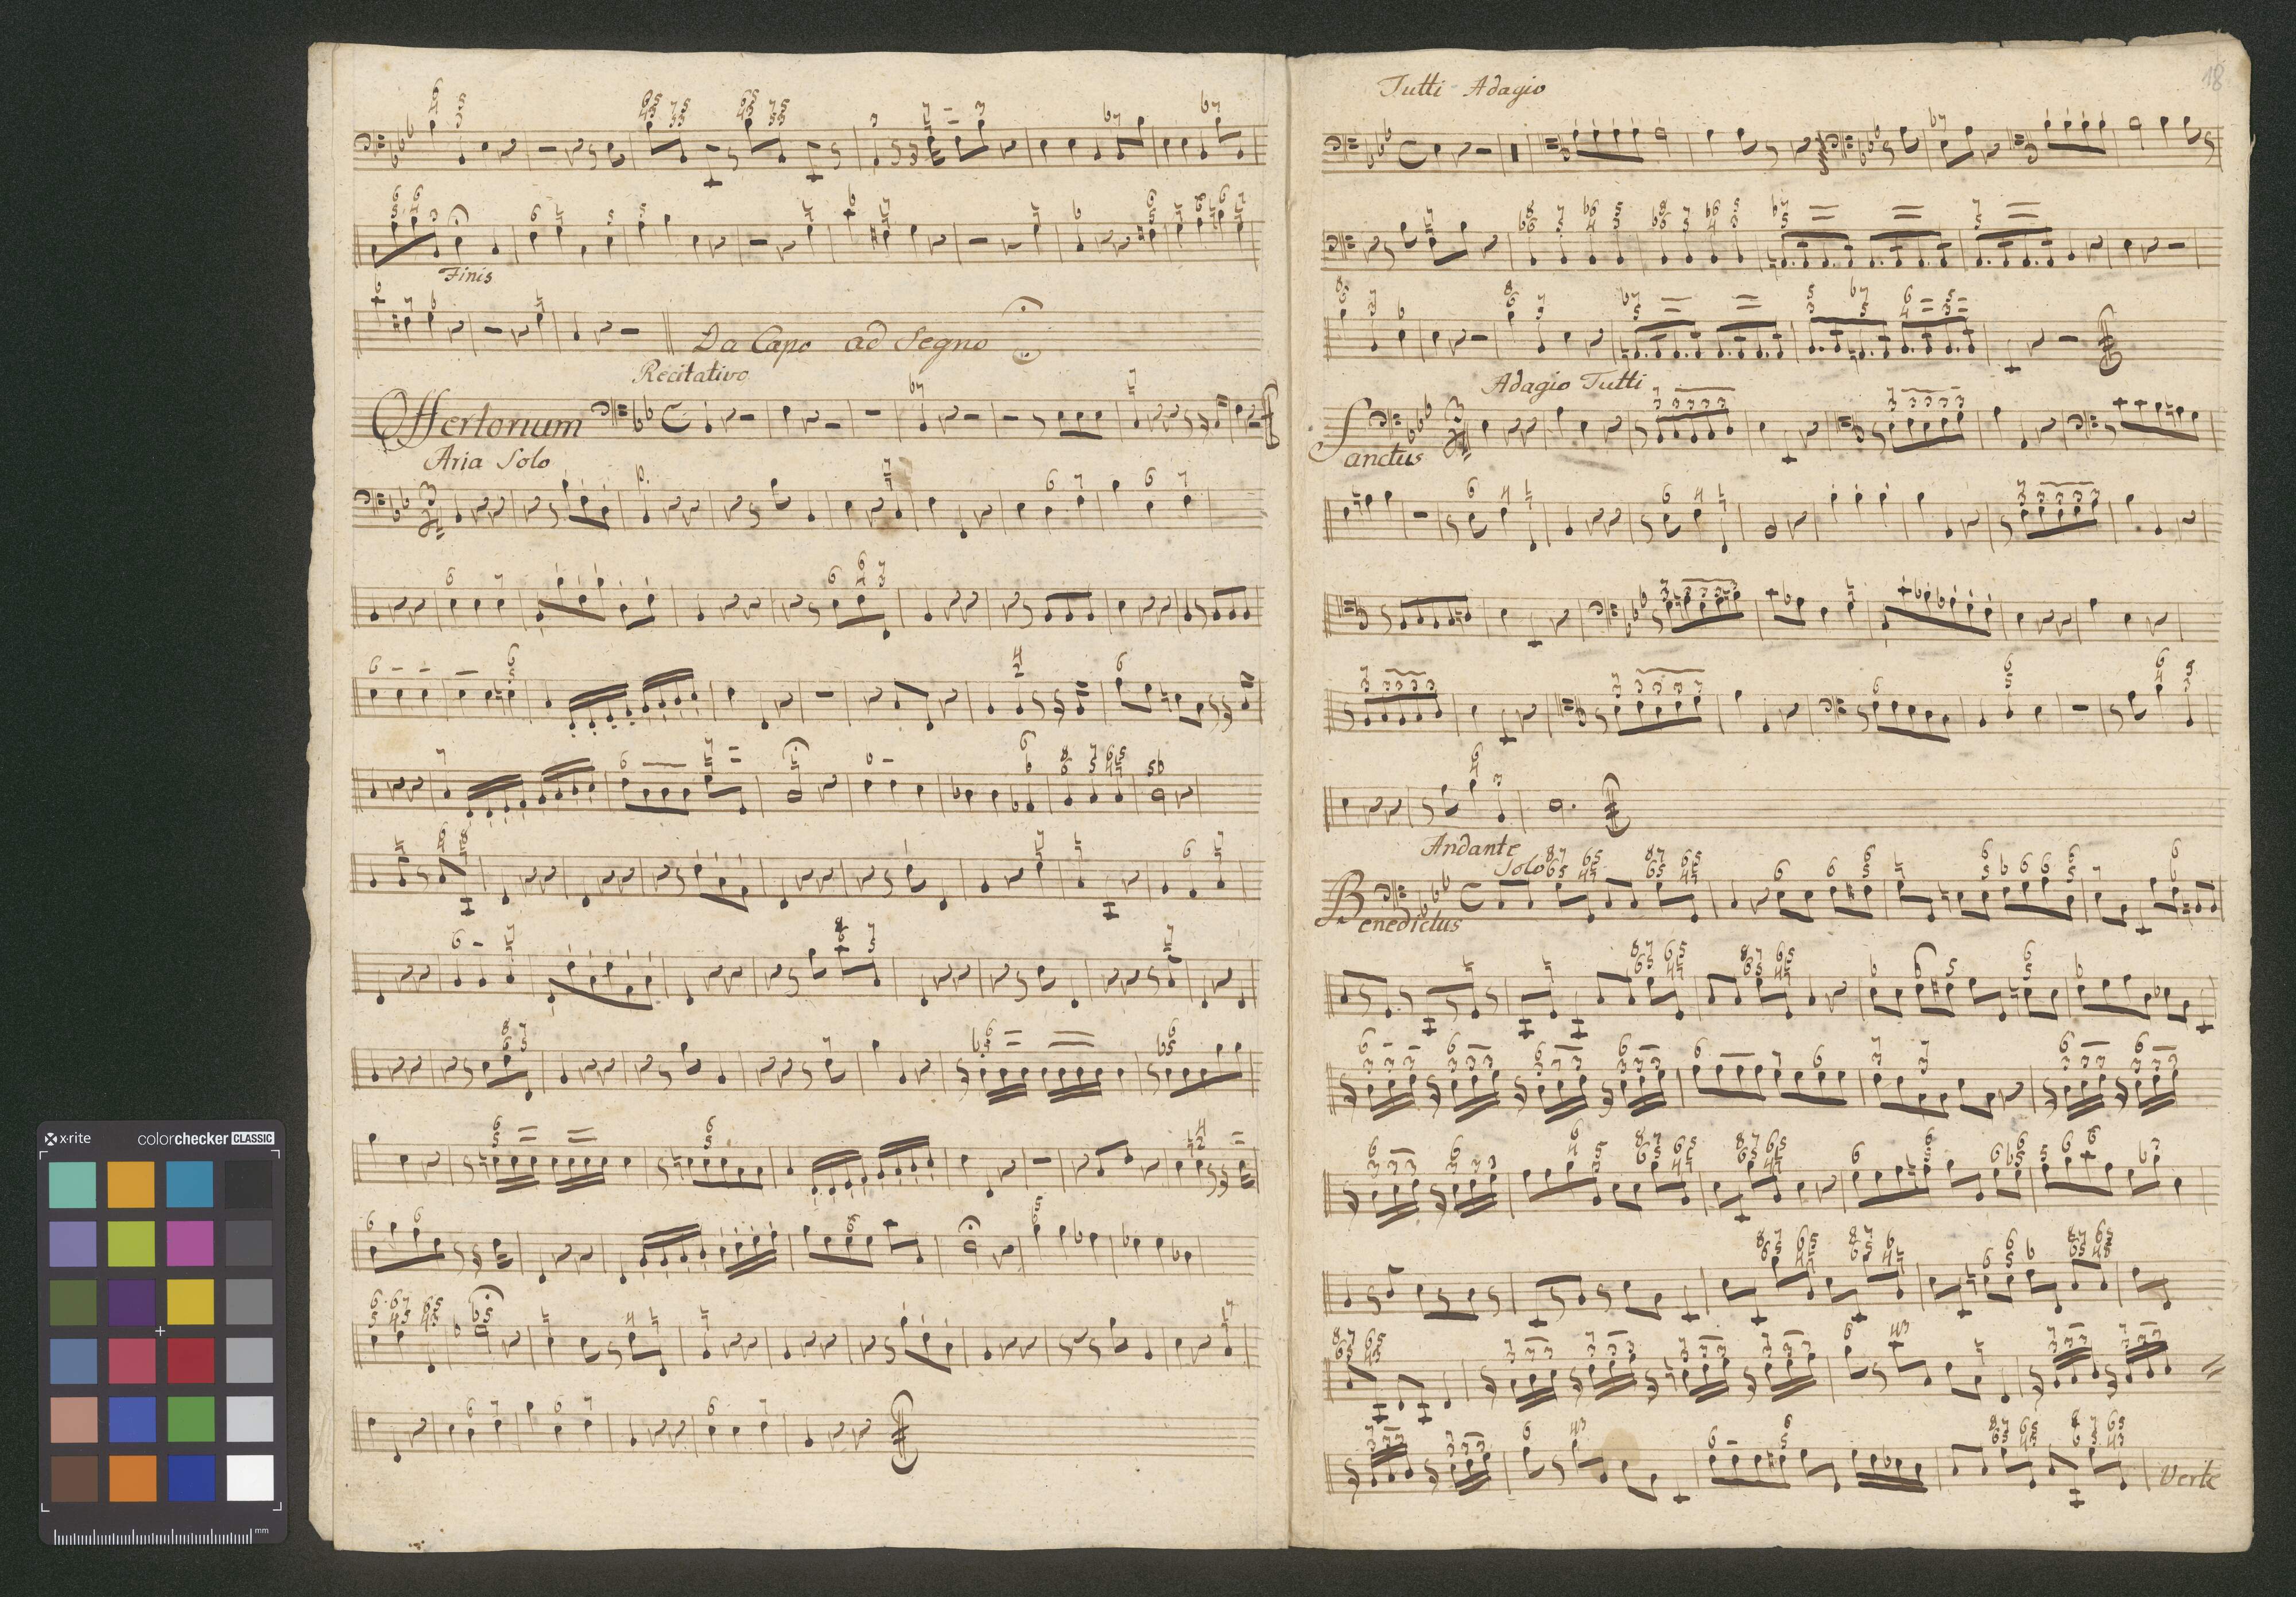 Finis
Da Capo ad Segno
Recitativo
Offertorium
Aria Solo
18
Tutti Adagio
Adagio Tutti
Sanctus
Andante
Solo
Benedictus
Verte
x-rite colorchecker CLASSIC
mm